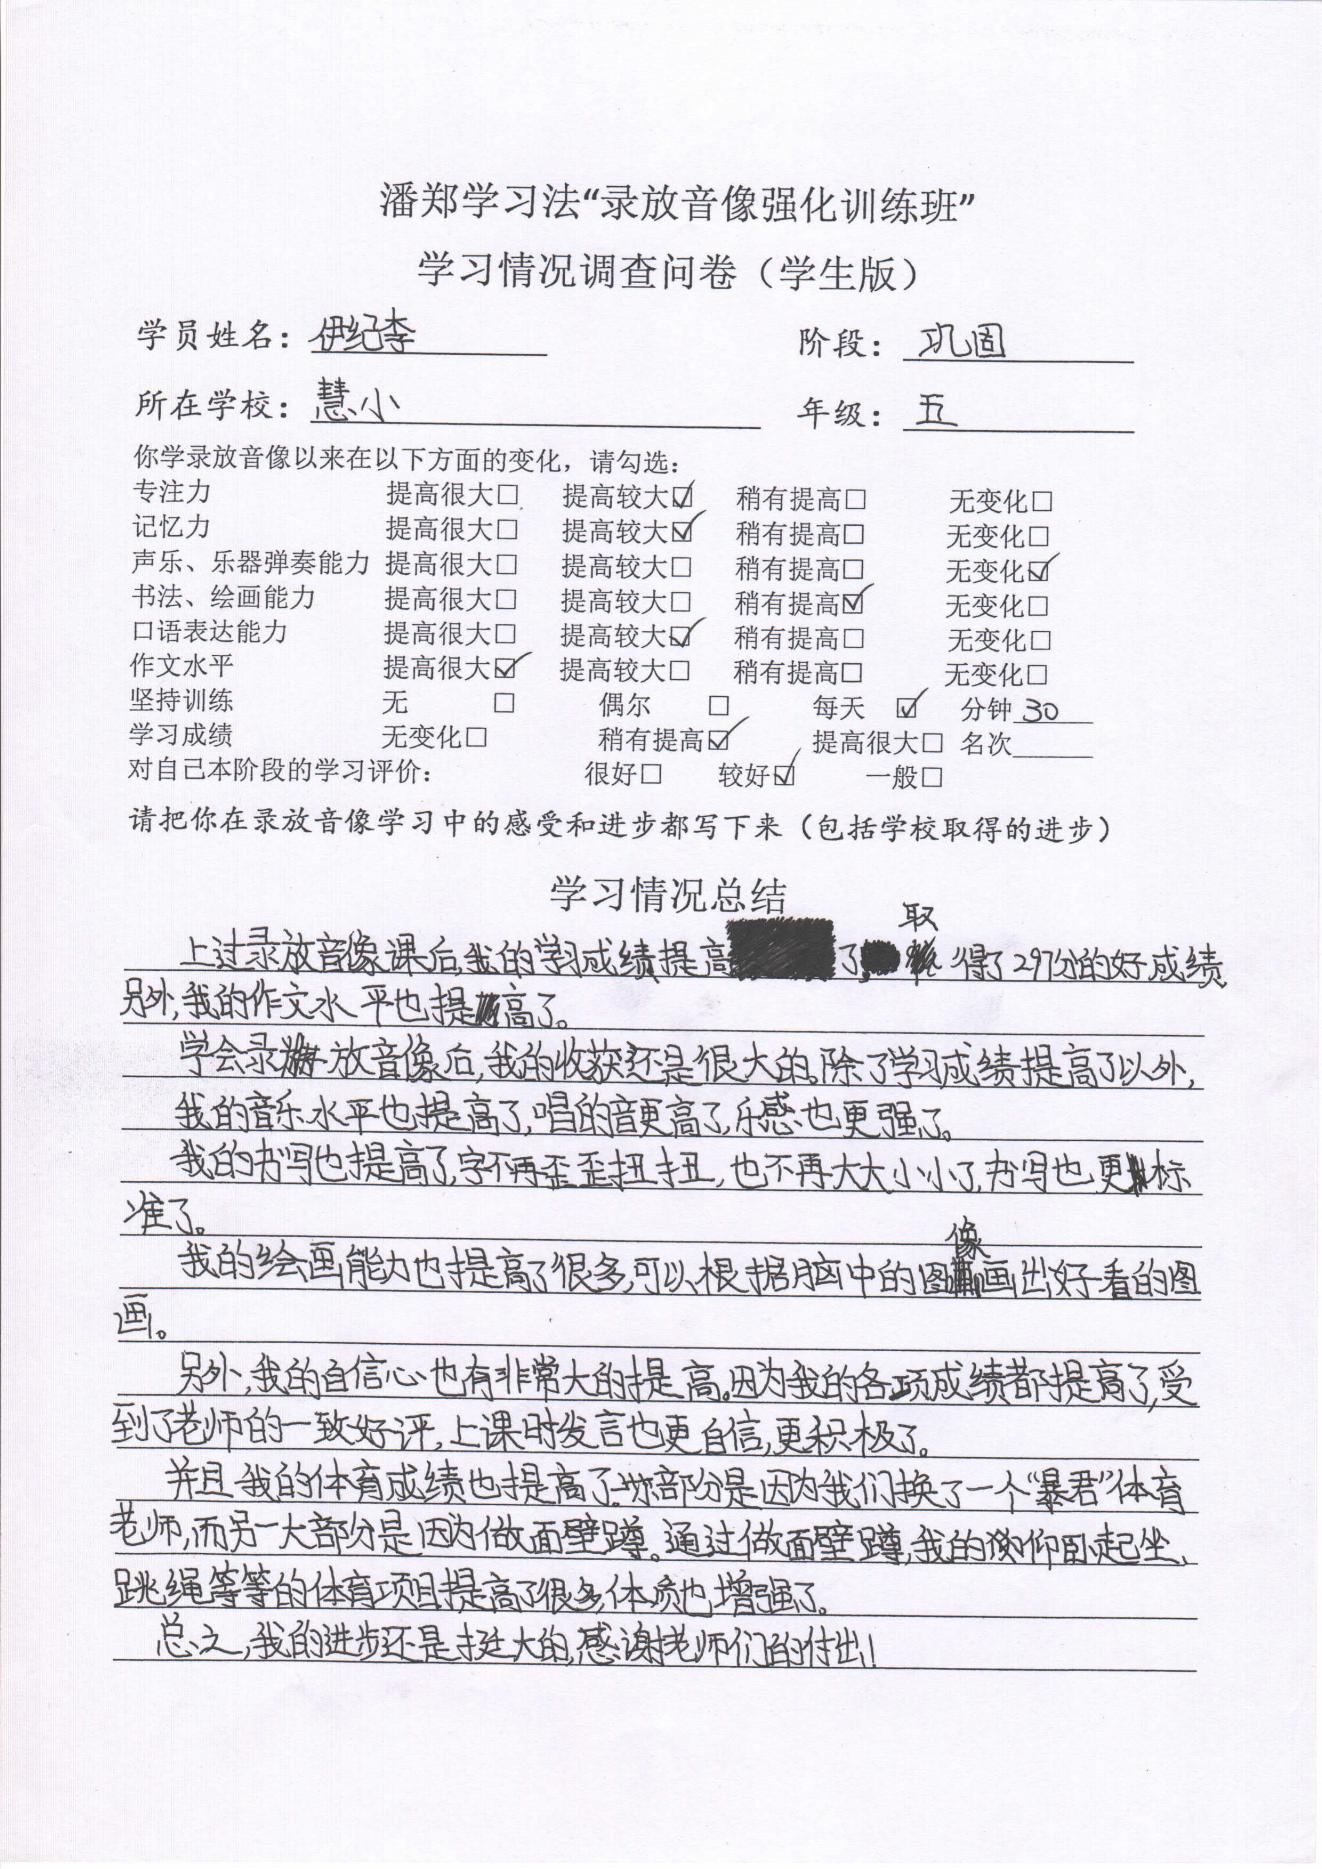 潘郑学习法“录放音像强化训练班”
学习情况调查问卷（学生版）
学员姓名：伊纪李 阶段：巩固
所在学校：慧小 年级：五
你学录放音像以来在以下方面的变化，请勾选：
专注力 提高很大□ 提高较大☑ 稍有提高□ 无变化□
记忆力 提高很大□ 提高较大☑ 稍有提高□ 无变化□
声乐、乐器弹奏能力 提高很大□ 提高较大□ 稍有提高□ 无变化☑
书法、绘画能力 提高很大□ 提高较大□ 稍有提高☑ 无变化□
口语表达能力 提高很大□ 提高较大☑ 稍有提高□ 无变化□
作文水平 提高很大☑ 提高较大□ 稍有提高□ 无变化□
坚持训练 无 □ 偶尔 □ 每天 ☑ 分钟 30
学习成绩 无变化□ 稍有提高☑ 提高很大□ 名次
对自己本阶段的学习评价： 很好□ 较好☑ 一般□
请把你在录放音像学习中的感受和进步都写下来（包括学校取得的进步）
学习情况总结
上过录放音像课后，我的学习成绩提高了，取得了297分的好成绩，
另外，我的作文水平也提高了。
学会录放音像后，我的收获还是很大的。除了学习成绩提高了以外，
我的音乐水平也提高了，唱的音更高了，乐感也更强了。
我的书写也提高了，字不再歪歪扭扭，也不再大大小小了，书写也更标
准了。
我的绘画能力也提高了很多，可以根据脑中的图像画出好看的图
画。
另外，我的自信心也有非常大的提高。因为我的各项成绩都提高了，受
到了老师的一致好评，上课时发言也更自信，更积极了。
并且我的体育成绩也提高了。一部分是因为我们换了一个“暴君”体育
老师，而另一大部分是因为做面壁蹲。通过做面壁蹲，我的仰卧起坐、
跳绳等等的体育项目提高了很多，体质也增强了。
总之，我的进步还是挺大的，感谢老师们的付出！